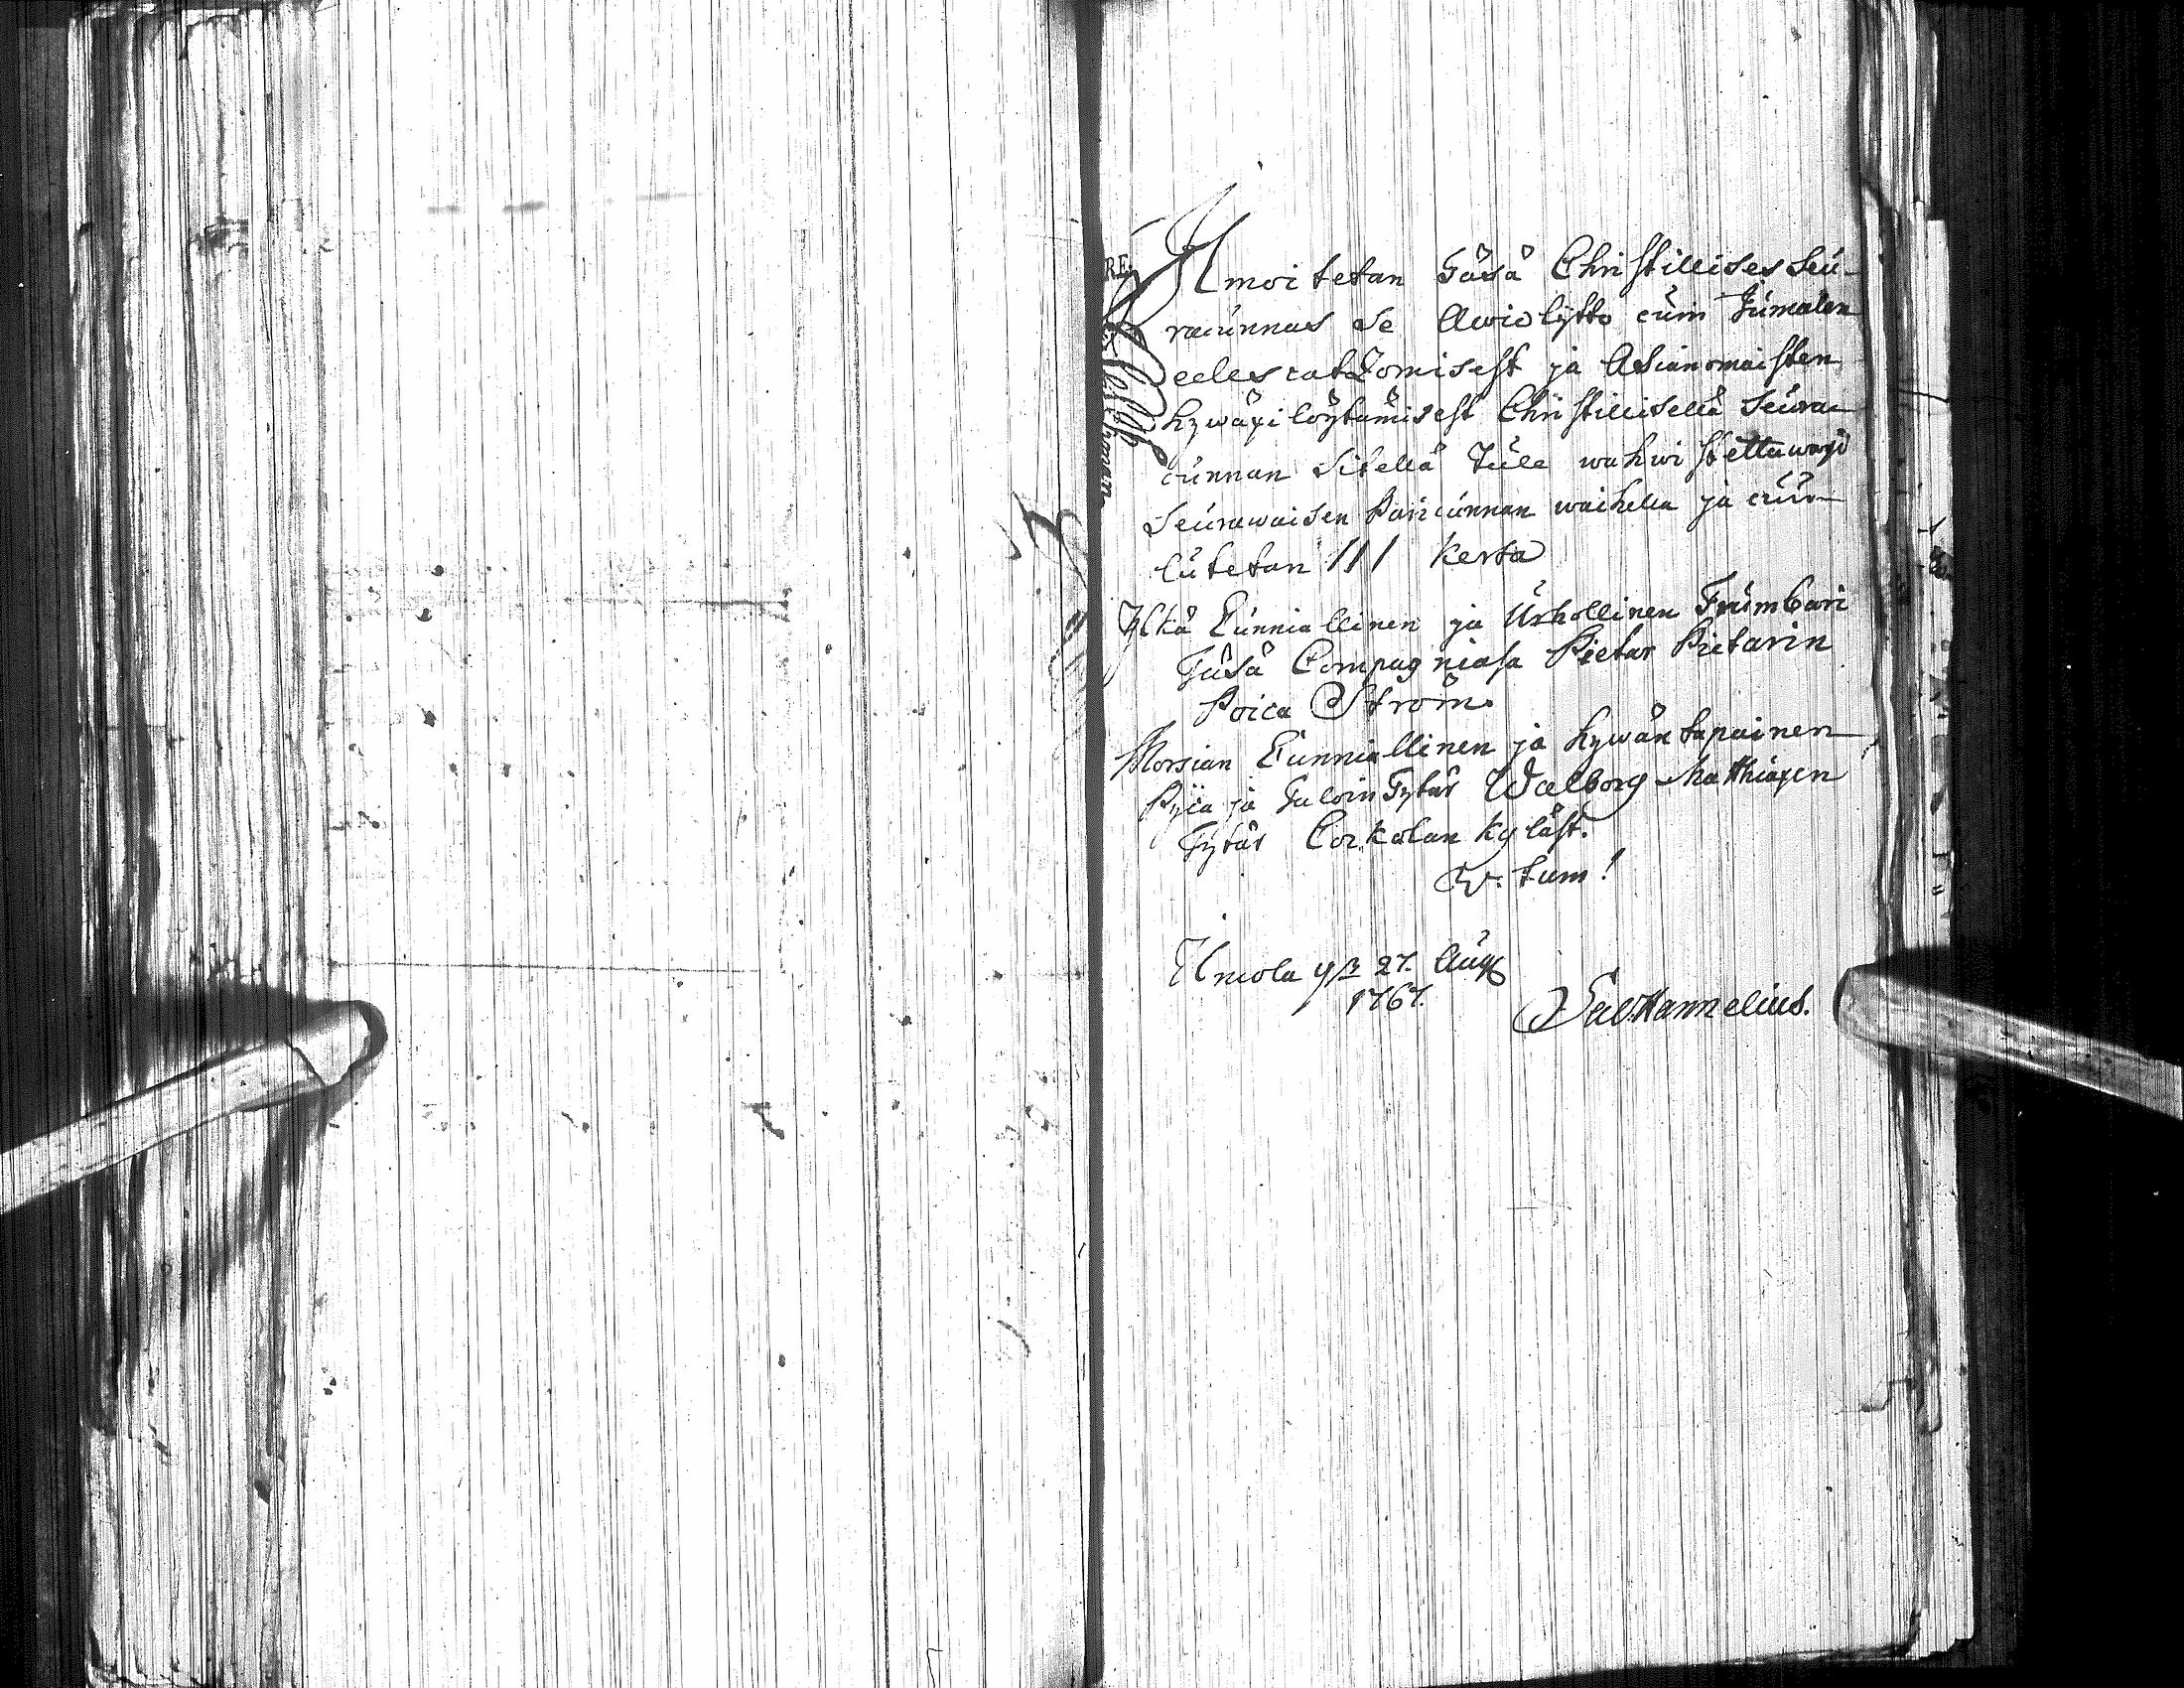 Ilmoitetan Täsä Christillises Seu-
racunnas se Awiolijtto cuin Jumalan
edescatzomisest ja Asianomaisten
hywäxi löytämisest Christillisellä Seura-
cunnan Sitellä Tule wahwistettawaxi
Seurawaisen Paricunnan waihella ja cuu-
lutetan III Kerta
Ylkä Cunniallinen ja Urhollinen Trumbari
Täsä Compagniasa Pietar Pietarin
Poica Ström.
Morsian Cunniallinen ja hywäntapainen
Pijca ja Taloin Tytär Walborg Matthiaxen
Tytär Corkolan Kyläst.
V. tum!
Ilmola 27. Aug
1767.
Sal. Hannelius.